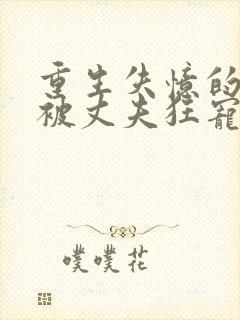 重生失憶的
被丈夫狂寵
噗噗花